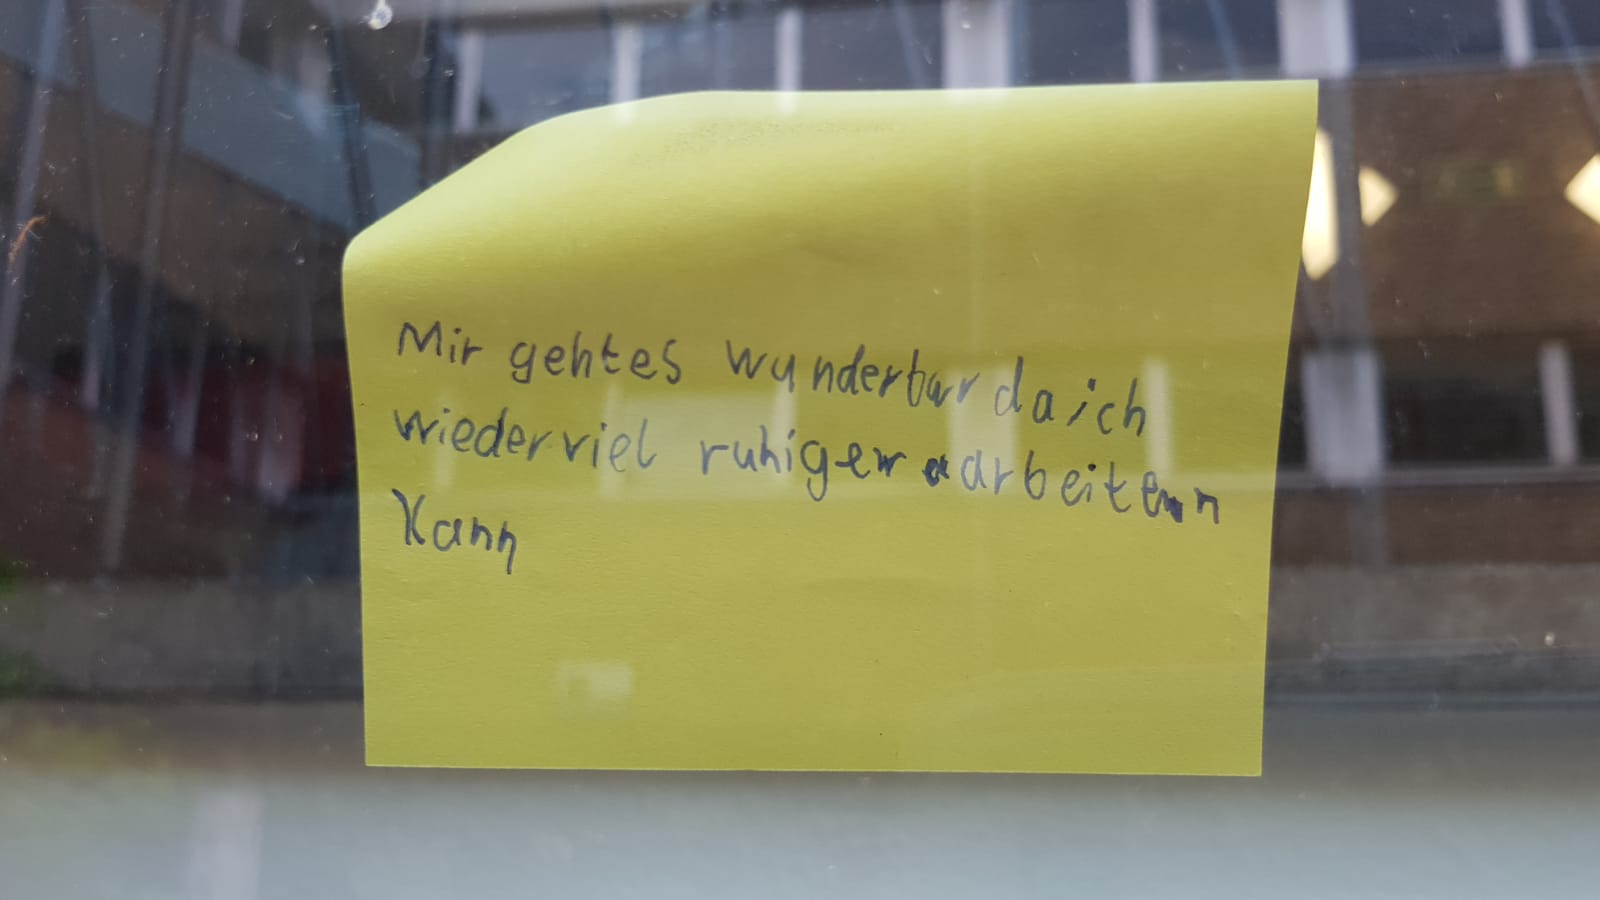 Mir gehtes wunderbar da ich
wieder viel ruhiger arbeiten
Kann